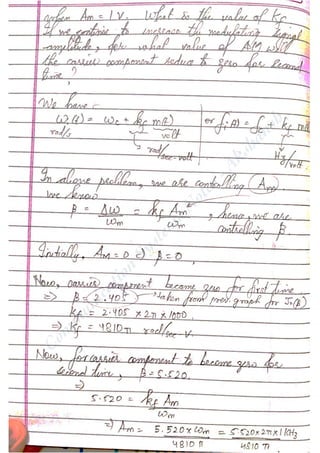 when Am = 1 V. What is the value of kf
If we continue to increase the modulating signal
amplitude, for what value of Am will
the carrier component reduce to zero for second
time?
We have :-
ωi(t) = ωc + kf m(t) or fi(t) = fc + kf m(t)
rad/s volt
rad/sec·volt Hz/volt
In above problem, we are controlling Am.
we know
β = Δω/ωm = kf Am/ωm, hence, we are
controlling β
Initially, Am = 0 ⇒ β = 0,
Now, carrier component became zero for first time
⇒ β = 2.405 taken from prev. graph for J0(β)
kf = 2.405 × 2π × 1000.
⇒ kf = 4810π rad/sec-V.
Now, for carrier component to become zero for
second time, β = 5.520.
⇒
5.520 = kf Am/ωm
⇒ Am = 5.520 × ωm/4810π = 5.520 × 2π × 1 KHz/4810π